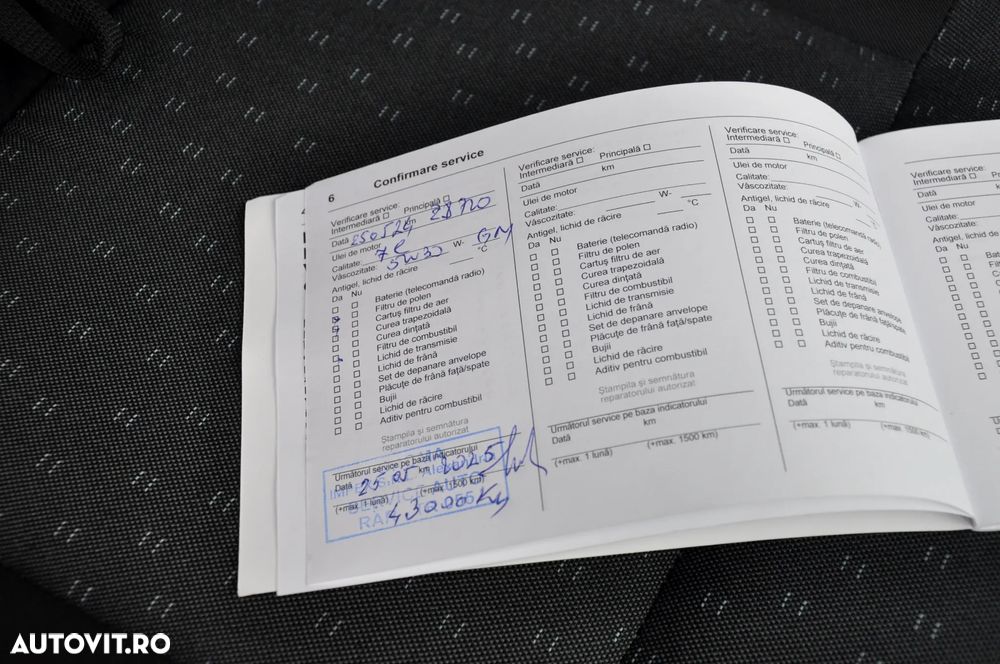 6 Confirmare service
Verificare service:
Intermediară □ Principală □
Data 250524 km 28720
Ulei de motor 7l
Calitate: W- GM
Vâscozitate: 5W30 °C
Antigel, lichid de răcire
Da Nu
Baterie (telecomandă radio)
Filtru de polen
Cartuş filtru de aer
Curea trapezoidală
Curea dinţată
Filtru de combustibil
Lichid de transmisie
Lichid de frână
Set de depanare anvelope
Plăcuţe de frână faţă/spate
Bujii
Lichid de răcire
Aditiv pentru combustibil
Ştampila şi semnătura
reparatorului autorizat
Următorul service pe baza indicatorului
Dată 25.05 km 2025
(+max. 1 lună) (+max. 1500 km)
43000 Km
Verificare service:
Intermediară □ Principală □
Dată km
Ulei de motor
Calitate: W-
Vâscozitate: °C
Antigel, lichid de răcire
Da Nu
Baterie (telecomandă radio)
Filtru de polen
Cartuş filtru de aer
Curea trapezoidală
Curea dinţată
Filtru de combustibil
Lichid de transmisie
Lichid de frână
Set de depanare anvelope
Plăcuţe de frână faţă/spate
Bujii
Lichid de răcire
Aditiv pentru combustibil
Ştampila şi semnătura
reparatorului autorizat
Următorul service pe baza indicatorului
Dată km
(+max. 1 lună) (+max. 1500 km)
Verificare service:
Intermediară □ Principală □
Dată km
Ulei de motor
Calitate: W-
Vâscozitate: °C
Antigel, lichid de răcire
Da Nu
Baterie (telecomandă radio)
Filtru de polen
Cartuş filtru de aer
Curea trapezoidală
Curea dinţată
Filtru de combustibil
Lichid de transmisie
Lichid de frână
Set de depanare anvelope
Plăcuţe de frână faţă/spate
Bujii
Lichid de răcire
Aditiv pentru combustibil
Ştampila şi semnătura
reparatorului autorizat
Următorul service pe baza indicatorului
Dată km
(+max. 1 lună) (+max. 1500 km)
Verificare service:
Intermediară □
Dată
Ulei de motor
Calitate:
Vâscozitate:
Antigel, lichid de
Da Nu
AUTOVIT.RO